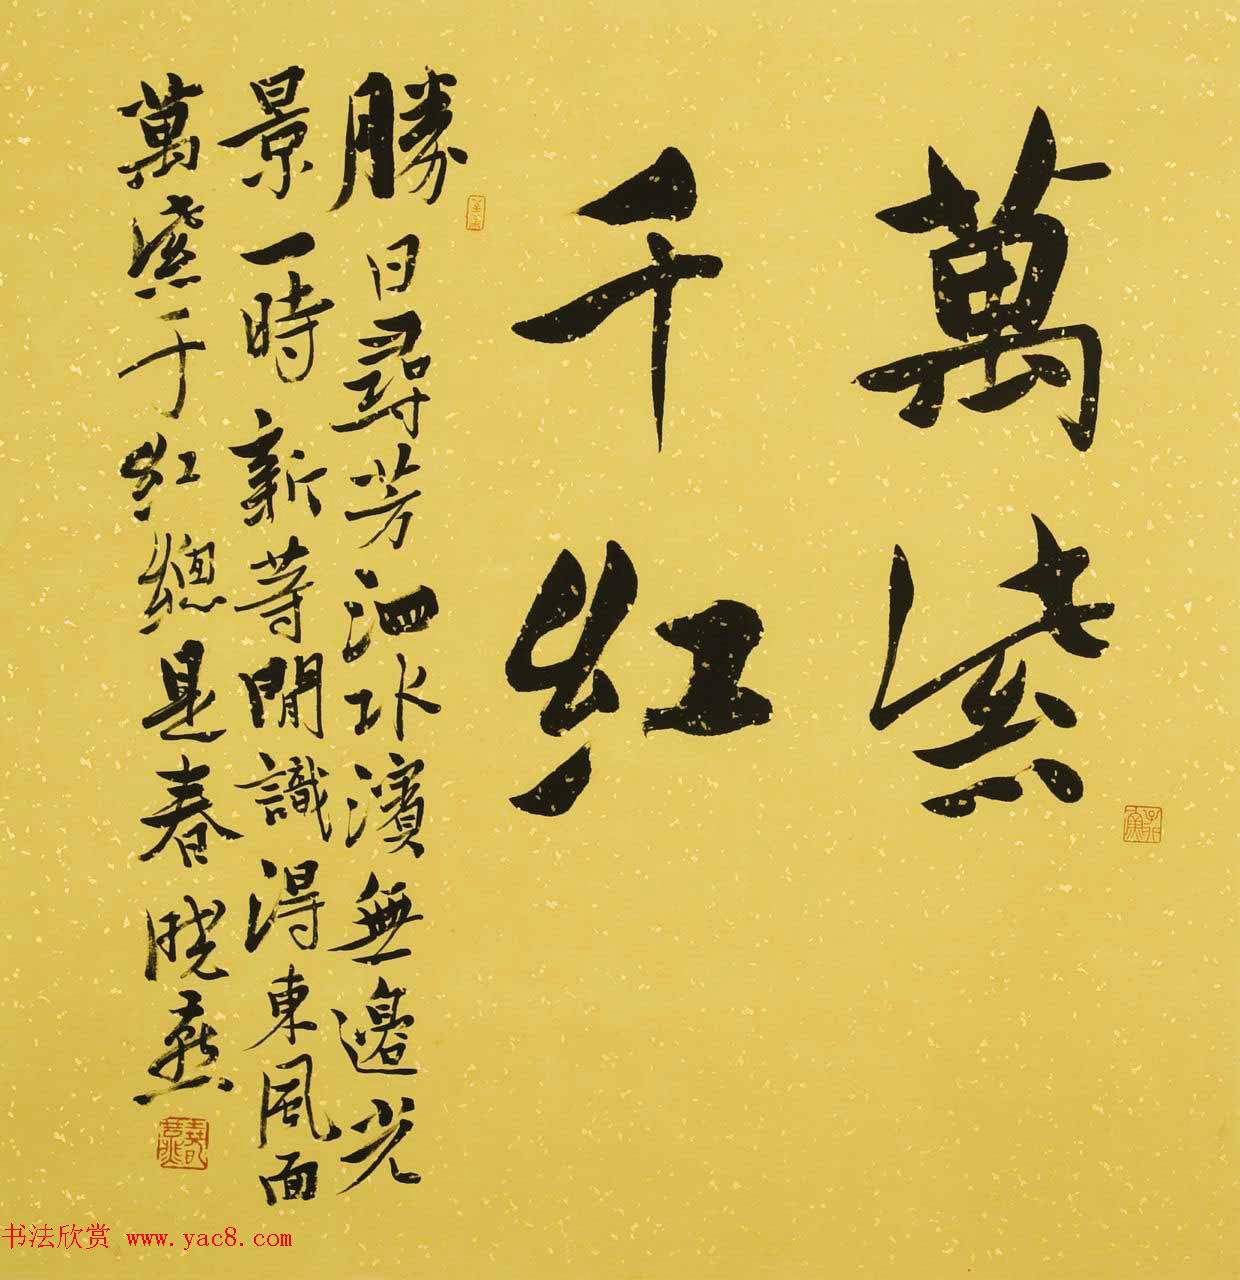 萬紫
千紅
勝日尋芳泗水濱無邊光
景一時新等閒識得東風面
萬紫千紅總是春曉燕
书法欣赏 www.yac8.com